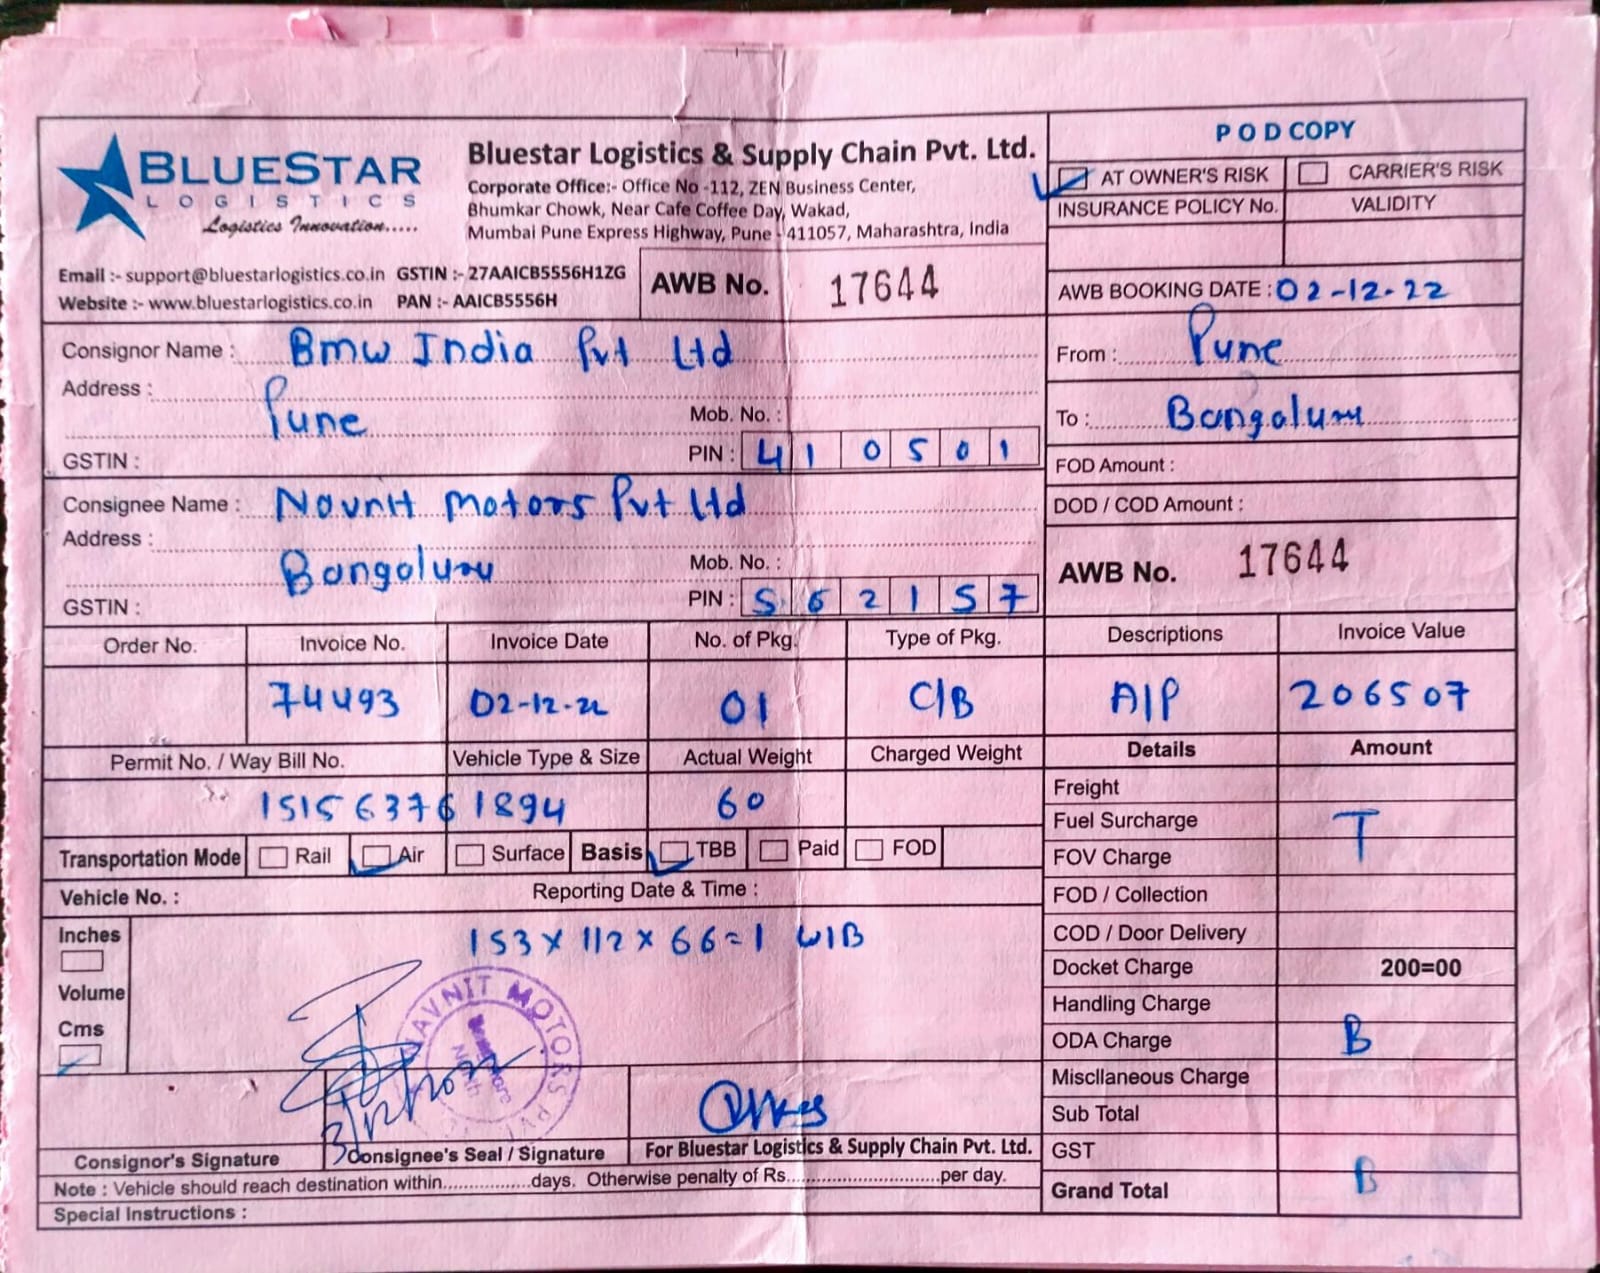 BLUESTAR
LOGISTICS
Logistics Innovation.....
Bluestar Logistics & Supply Chain Pvt. Ltd.
Corporate Office:- Office No -112, ZEN Business Center,
Bhumkar Chowk, Near Cafe Coffee Day, Wakad,
Mumbai Pune Express Highway, Pune - 411057, Maharashtra, India
Email :- support@bluestarlogistics.co.in GSTIN :- 27AAICB5556H1ZG
Website :- www.bluestarlogistics.co.in PAN :- AAICB5556H
AWB No. 17644
POD COPY
AT OWNER'S RISK CARRIER'S RISK
INSURANCE POLICY No. VALIDITY
AWB BOOKING DATE : 02-12-22
Consignor Name : Bmw India Pvt Ltd
Address :
Pune Mob. No. :
GSTIN : PIN : 410501
From : Pune
To : Bangalum
FOD Amount :
DOD / COD Amount :
Consignee Name : Novnit motors Pvt Ltd
Address :
Bangaluru Mob. No. :
GSTIN : PIN : 562157
AWB No. 17644
Order No. Invoice No. Invoice Date No. of Pkg. Type of Pkg. Descriptions Invoice Value
74493 02-12-22 01 C/B A/P 206507
Permit No. / Way Bill No. Vehicle Type & Size Actual Weight Charged Weight
151563761894 60
Transportation Mode Rail Air Surface Basis TBB Paid FOD
Vehicle No. : Reporting Date & Time :
Inches
Volume
Cms
153 x 112 x 66 = 1 W/B
NAVNIT MOTORS PVT
Details Amount
Freight
Fuel Surcharge T
FOV Charge
FOD / Collection
COD / Door Delivery
Docket Charge 200=00
Handling Charge
ODA Charge B
Miscllaneous Charge
Sub Total
GST
Grand Total B
Consignor's Signature Consignee's Seal / Signature For Bluestar Logistics & Supply Chain Pvt. Ltd.
Note : Vehicle should reach destination within.................days. Otherwise penalty of Rs..............................per day.
Special Instructions :